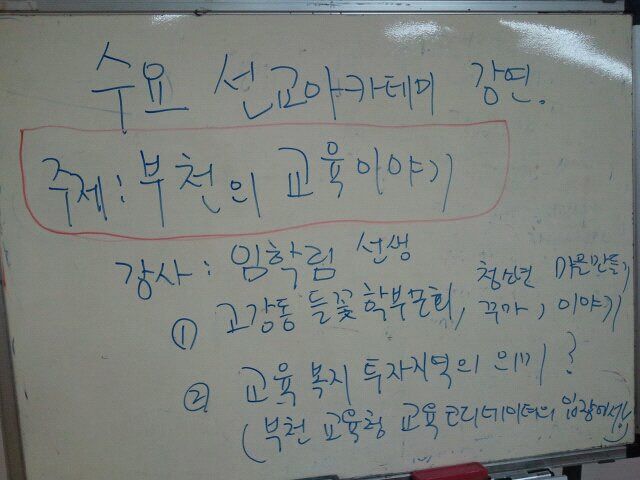 수요 선교아카데미 강연.
주제: 부천의 교육이야기
강사: 임학림 선생
① 고강동 들꽃학부모회, 청소년 마을만들기 꾸마, 이야기
② 교육 복지 투자지역의 의미?
(부천 교육청 교육코디네이터의 입장에서)